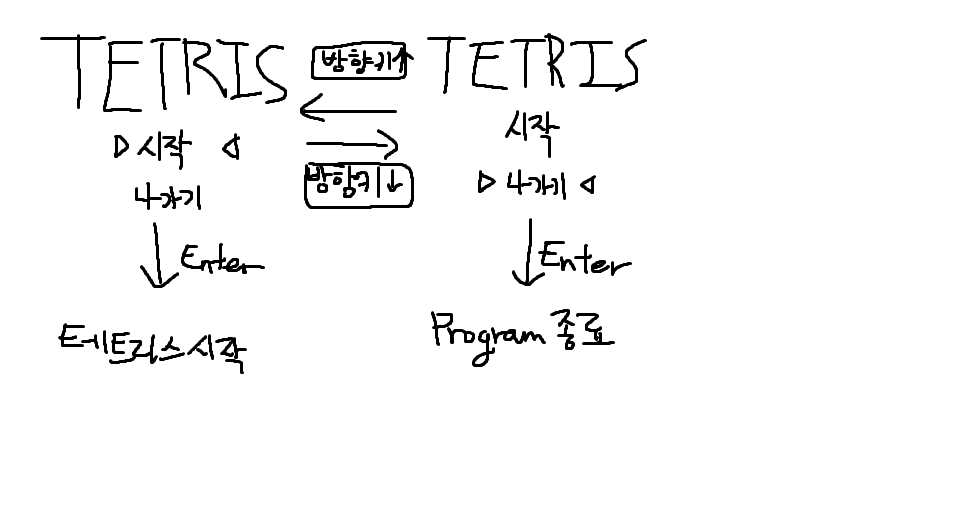 TETRIS
▷ 시작 ◁
나가기
Enter
테트리스 시작
방향키↑
방향키↓
TETRIS
시작
▷ 나가기 ◁
Enter
Program 종료